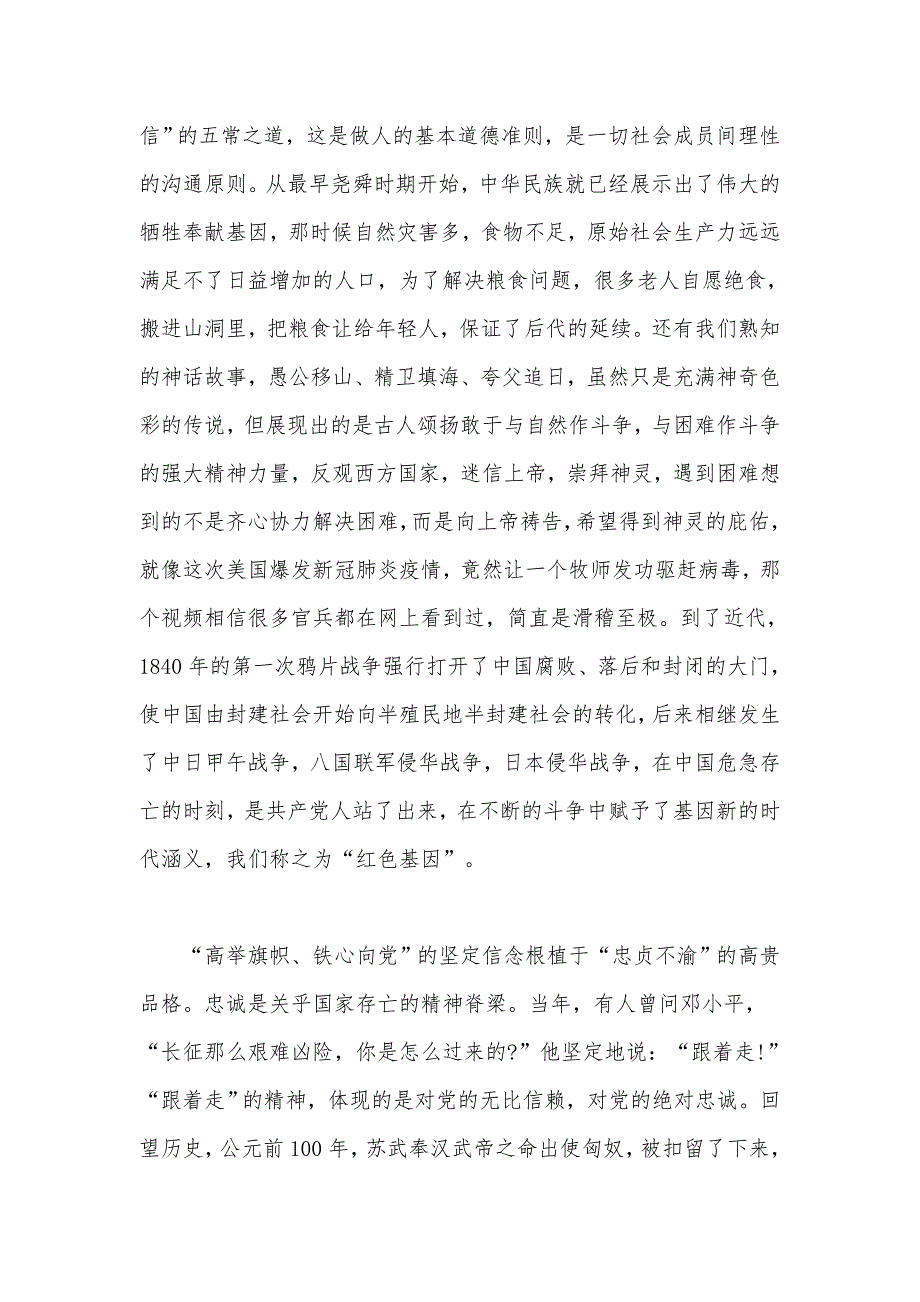 信”的五常之道，这是做人的基本道德准则，是一切社会成员间理性
的沟通原则。从最早尧舜时期开始，中华民族就已经展示出了伟大的
牺牲奉献基因，那时候自然灾害多，食物不足，原始社会生产力远远
满足不了日益增加的人口，为了解决粮食问题，很多老人自愿绝食，
搬进山洞里，把粮食让给年轻人，保证了后代的延续。还有我们熟知
的神话故事，愚公移山、精卫填海、夸父追日，虽然只是充满神奇色
彩的传说，但展现出的是古人颂扬敢于与自然作斗争，与困难作斗争
的强大精神力量，反观西方国家，迷信上帝，崇拜神灵，遇到困难想
到的不是齐心协力解决困难，而是向上帝祷告，希望得到神灵的庇佑，
就像这次美国爆发新冠肺炎疫情，竟然让一个牧师发功驱赶病毒，那
个视频相信很多官兵都在网上看到过，简直是滑稽至极。到了近代，
1840 年的第一次鸦片战争强行打开了中国腐败、落后和封闭的大门，
使中国由封建社会开始向半殖民地半封建社会的转化，后来相继发生
了中日甲午战争，八国联军侵华战争，日本侵华战争，在中国危急存
亡的时刻，是共产党人站了出来，在不断的斗争中赋予了基因新的时
代涵义，我们称之为“红色基因”。
“高举旗帜、铁心向党”的坚定信念根植于“忠贞不渝”的高贵
品格。忠诚是关乎国家存亡的精神脊梁。当年，有人曾问邓小平，
“长征那么艰难凶险，你是怎么过来的?”他坚定地说：“跟着走!”
“跟着走”的精神，体现的是对党的无比信赖，对党的绝对忠诚。回
望历史，公元前 100 年，苏武奉汉武帝之命出使匈奴，被扣留了下来，